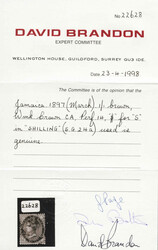 No 22628
DAVID BRANDON
EXPERT COMMITTEE
WELLINGTON HOUSE, GUILDFORD, SURREY GU3 IDE.
Date 23-4-1998
The Committee is of the opinion that the
Jamaica 1897 (March) 1/- brown,
Wmk Crown CA Perf 14, $ for "S"
in "SHILLING" (S.G. 24a) used is
genuine.
22628
David Brandon